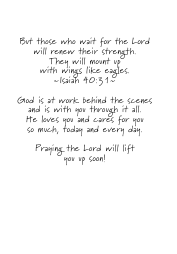 But those who wait for the Lord
will renew their strength.
They will mount up
with wings like eagles.
~Isaiah 40:31~
God is at work behind the scenes
and is with you through it all.
He loves you and cares for you
so much, today and every day.
Praying the Lord will lift
you up soon!